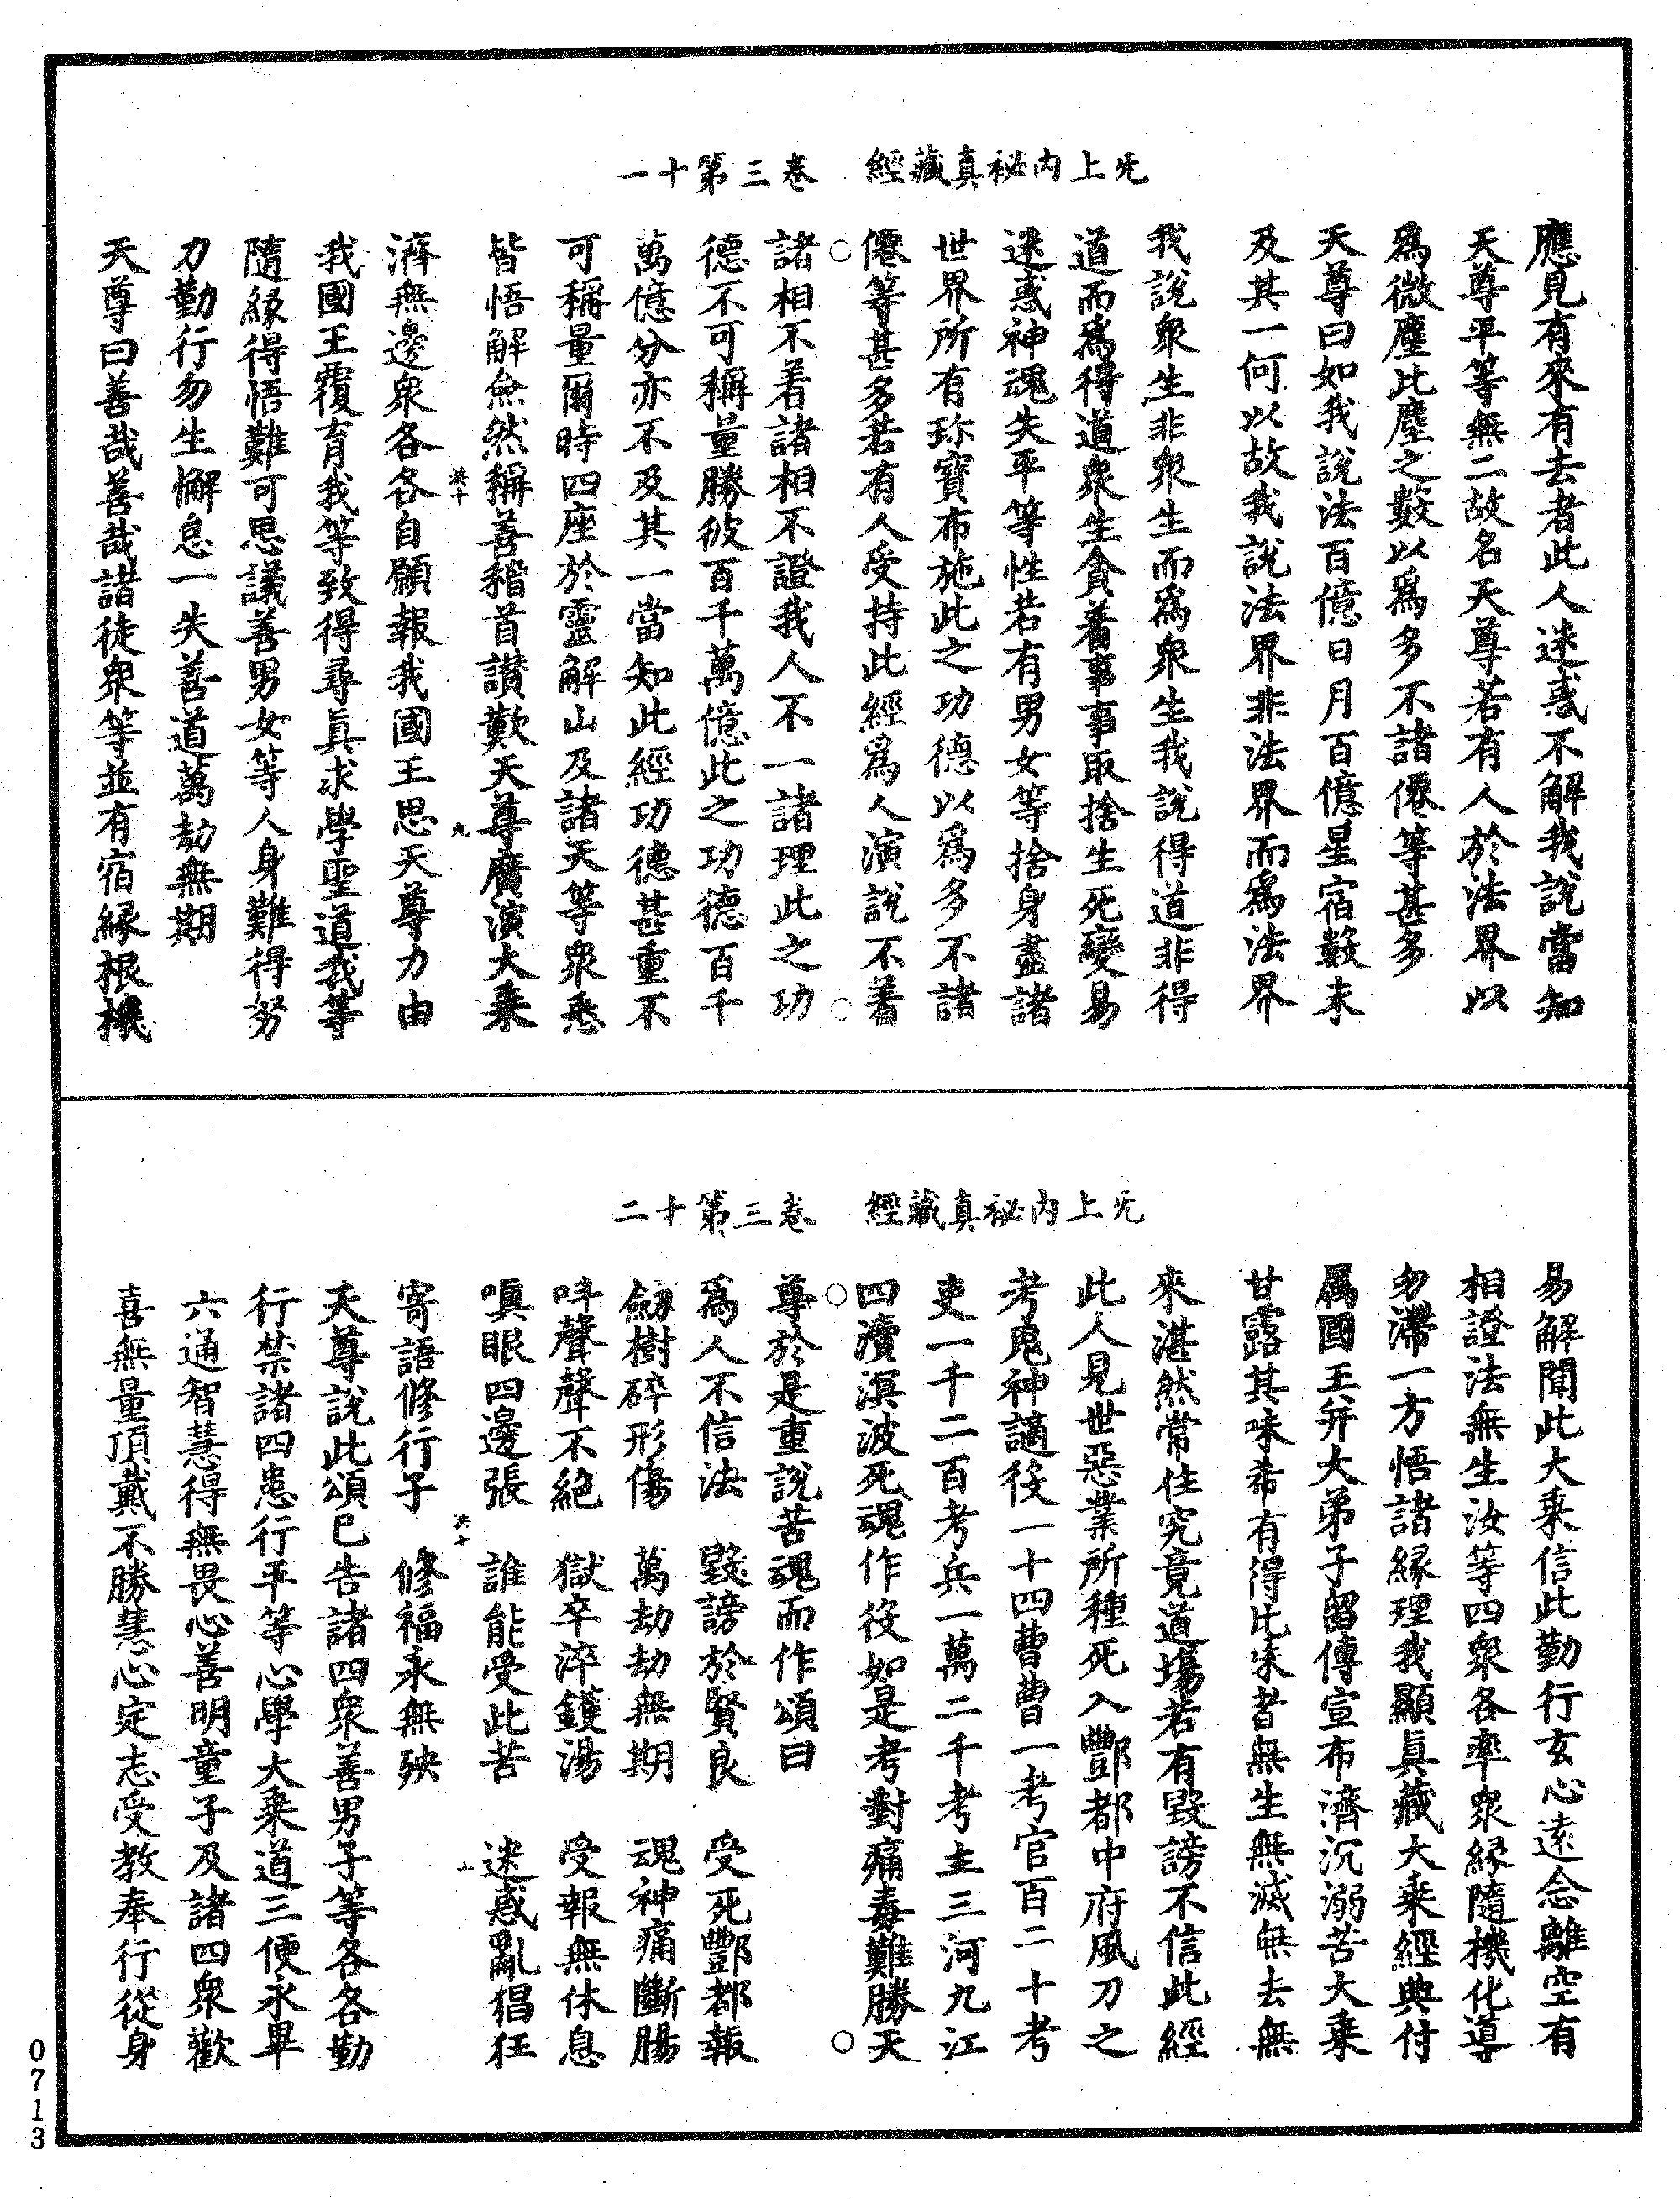 无上內祕真藏經　卷三第十一
應見有來有去者此人迷惑不解我說當知
天尊平等無二故名天尊若有人於法界以
爲微塵此塵之數以爲多不諸僊等甚多
天尊曰如我說法百億日月百億星宿數未
及其一何以故我說法界非法界而爲法界
我說衆生非衆生而爲衆生我說得道非得
道而爲得道衆生貪著事事取捨生死變易
迷惑神魂失平等性若有男女等捨身盡諸
世界所有珎寳布施此之功德以爲多不諸
僊等甚多若有人受持此經爲人演說不著
諸相不著諸相不證我人不一諸理此之功
德不可稱量勝彼百千萬億此之功德百千
萬億分亦不及其一當知此經功德甚重不
可稱量爾時四座於靈解山及諸天等衆悉
皆悟解僉然稱善稽首讚歎天尊廣演大乘
濟無邊衆各各自願報我國王思天尊力由
我國王覆育我等致得尋真求學聖道我等
隨緣得悟難可思議善男女等人身難得努
力勤行勿生懈息一失善道萬劫無期
天尊曰善哉善哉諸徒衆等並有宿緣根機
无上內祕真藏經　卷三第十二
易解聞此大乘信此勤行玄心遠念離空有
相證法無生汝等四衆各率衆緣隨機化導
勿滯一方悟諸緣理我顯真藏大乘經典付
属国王并大弟子留傳宣布濟沉溺苦大乘
甘露其味希有得比來者無生無滅無去無
來湛然常住究竟道場若有毀謗不信此經
此人見世惡業所種死入酆都中府風刀之
考鬼神謫役一十四曹曹一考官百二十考
吏一千二百考兵一萬二千考主三河九江
四瀆溟波死魂作役如是考對痛毒難勝天
尊於是重說苦魂而作頌曰
爲人不信法　毀謗於賢良　受死酆都報
劒樹碎形傷　萬劫劫無期　魂神痛斷腸
呌聲聲不絕　獄卒淬鑊湯　受報無休息
嗔眼四邊張　誰能受此苦　迷惑亂猖狂
寄語修行子　修福永無殃
天尊說此頌已告諸四衆善男子等各各勤
行禁諸四患行平等心學大乘道三便永畢
六通智慧得無畏心善明童子及諸四衆歡
喜無量頂戴不勝慧心定志受教奉行從身
0713